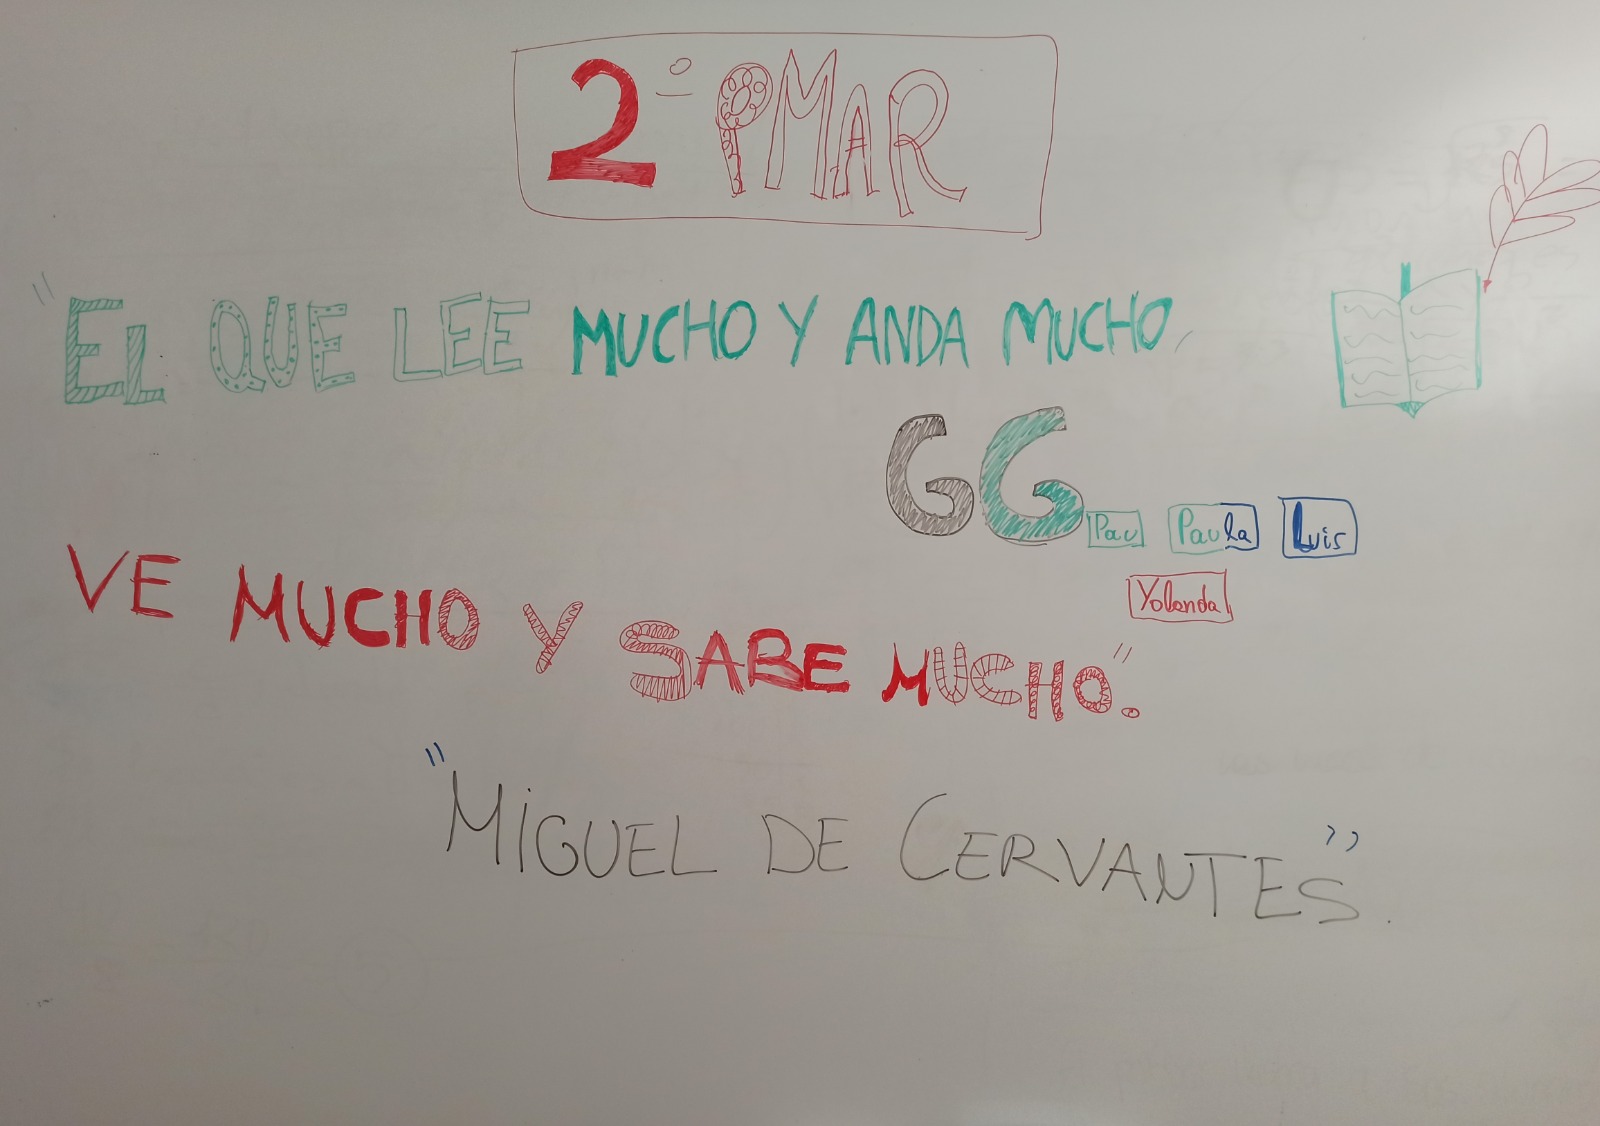 2º PMAR
"EL QUE LEE MUCHO Y ANDA MUCHO,
GG
Pau Paula Luis
Yolanda
VE MUCHO Y SABE MUCHO."
"MIGUEL DE CERVANTES".